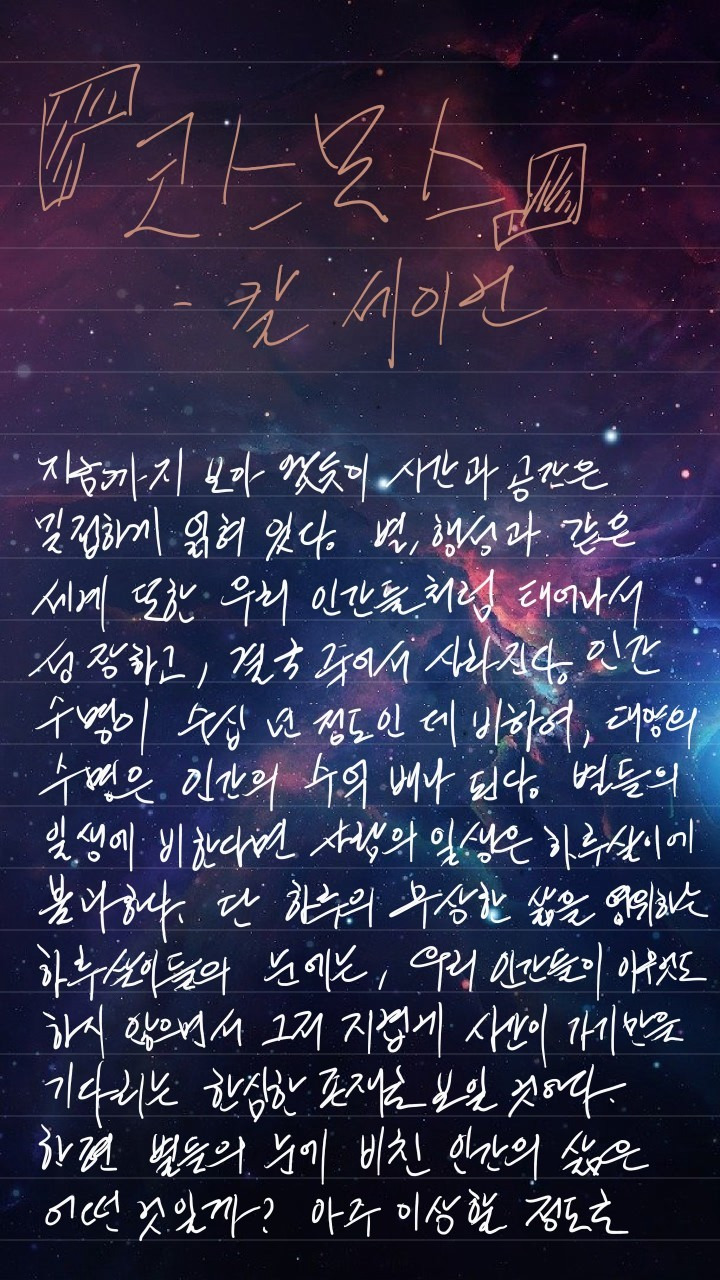 『코스모스』
- 칼 세이건
지금까지 보아 왔듯이 시간과 공간은
밀접하게 얽혀 있다. 별, 행성과 같은
세계 또한 우리 인간들처럼 태어나서
성장하고, 결국 죽어서 사라진다. 인간
수명이 수십 년 정도인 데 비하여, 태양의
수명은 인간의 수억 배나 된다. 별들의
일생에 비한다면 사람의 일생은 하루살이에
불과하다. 단 하루의 무상한 삶을 영위하는
하루살이들의 눈에는, 우리 인간들이 아무것도
하지 않으면서 그저 지겹게 시간이 가기만을
기다리는 한심한 존재로 보일 것이다.
한편 별들의 눈에 비친 인간의 삶은
어떤 것일까? 아주 이상할 정도로